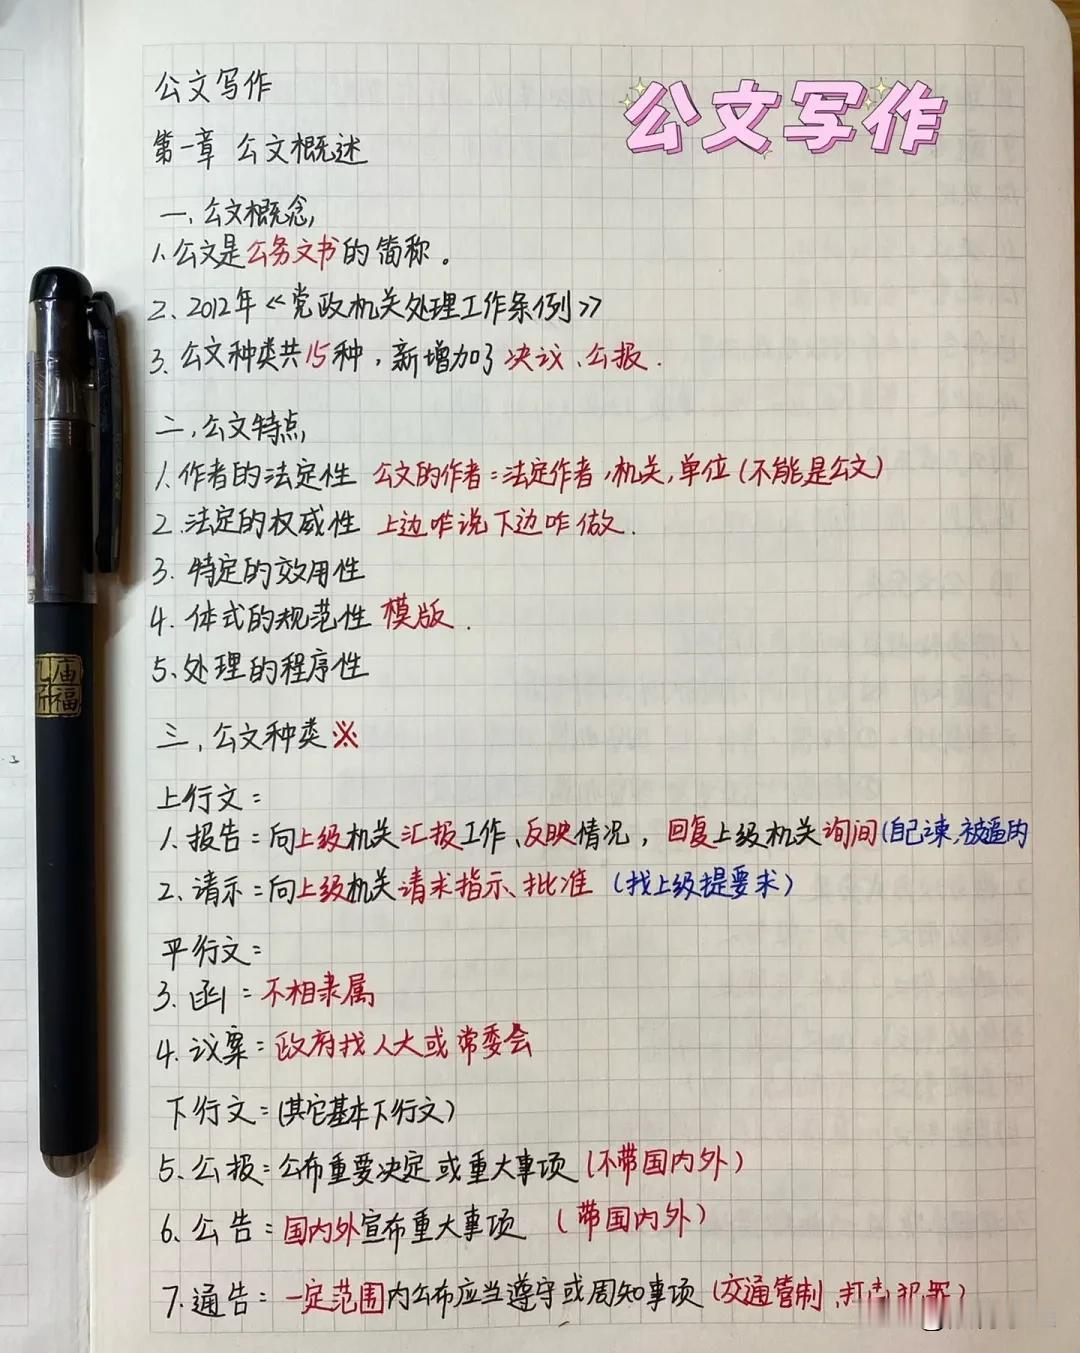 公文写作
公文写作
第一章 公文概述
一、公文概念
1.公文是公务文书的简称。
2、2012年《党政机关处理工作条例》
3.公文种类共15种，新增加了决议、公报.
二、公文特点
1.作者的法定性 公文的作者:法定作者,机关,单位(不能是公文)
2.法定的权威性 上边咋说下边咋做.
3.特定的效用性
4.体式的规范性 模版.
5.处理的程序性
三、公文种类※
上行文:
1.报告:向上级机关汇报工作、反映情况，回复上级机关询问(自己来,被逼的
2、请示:向上级机关请求指示、批准 (找上级提要求)
平行文:
3.函:不相隶属
4.议案:政府找人大或常委会
下行文:(其它基本下行文)
5.公报:公布重要决定或重大事项(不带国内外)
6、公告:国内外宣布重大事项 (带国内外)
7.通告:一定范围内公布应当遵守或周知事项(交通管制、打击犯罪)
孔庙
祈福